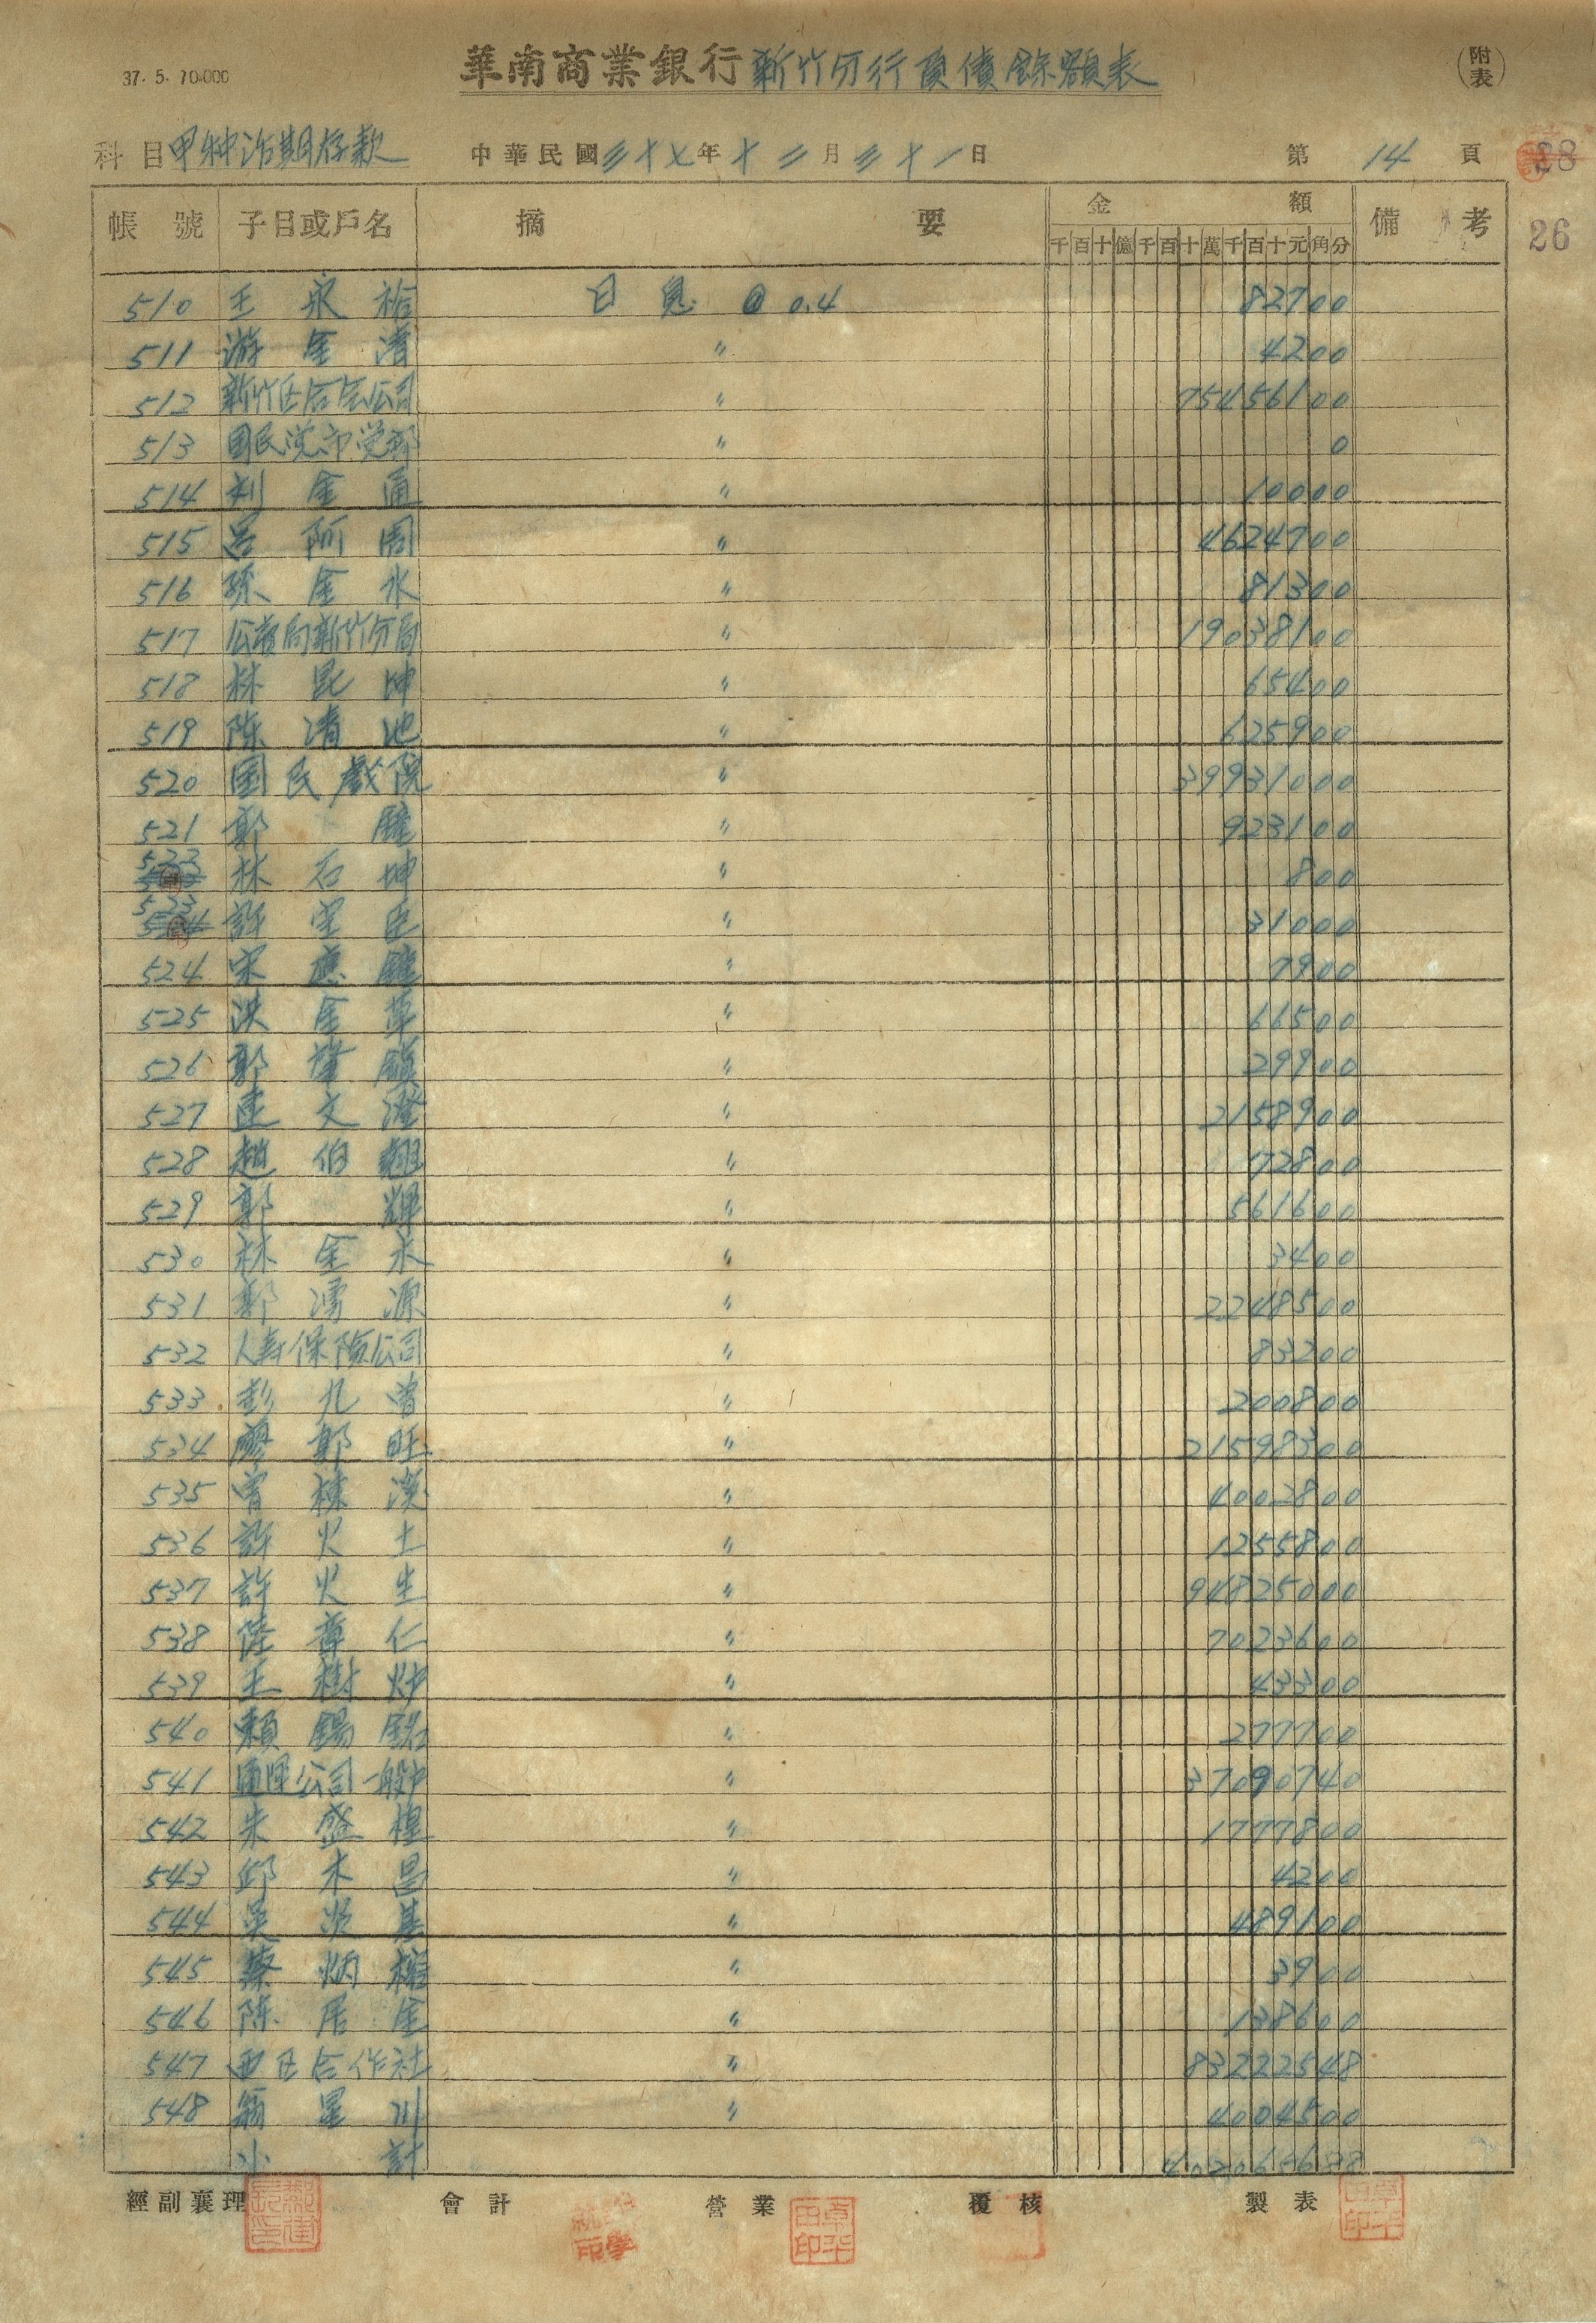 37. 5. 10.000
華南商業銀行新竹分行負債餘額表
(附表)
科目 甲种活期存款 中華民國三十七年十二月三十一日 第 14 頁
28
26
帳號 子目或戶名 摘要 金額 備考
千百十億千百十萬千百十元角分
510 王永裕 日息 @ 0.4 82700
511 游金清 〃 4200
512 新竹区合会公司 〃 75456100
513 国民党市党部 〃 0
514 利金通 〃 10000
515 呂阿周 〃 4624700
516 孫金水 〃 81300
517 新竹分局 〃 19038100
518 林昆坤 〃 65400
519 陈清池 〃 625900
520 国民戲院 〃 39931000
521 郭鐘 〃 923100
522 林石坤 〃 800
523 許堂臣 〃 31000
524 宋應 〃 7900
525 洪金草 〃 66500
526 郭肇鎮 〃 29900
527 連文澄 〃 2158900
528 趙伯 〃 172800
529 郭輝 〃 561600
530 林金水 〃 3400
531 鄭湧源 〃 2248500
532 人寿保險公司 〃 83200
533 彭九曾 〃 200800
534 廖郭旺 〃 21598300
535 曾棟漢 〃 4002800
536 許火土 〃 1255800
537 許火生 〃 94825000
538 陸尊仁 〃 7023600
539 王樹炉 〃 43300
540 賴錫銘 〃 277700
541 通運公司一般户 〃 37090740
542 朱盛 〃 1777800
543 邱木昌 〃 4200
544 吳基 〃 489100
545 蔡炳 〃 3900
546 陈居金 〃 138600
547 西区合作社 〃 83222548
548 翁星川 〃 4004500
小計 402065688
經副襄理 會計 營業 覆核 製表